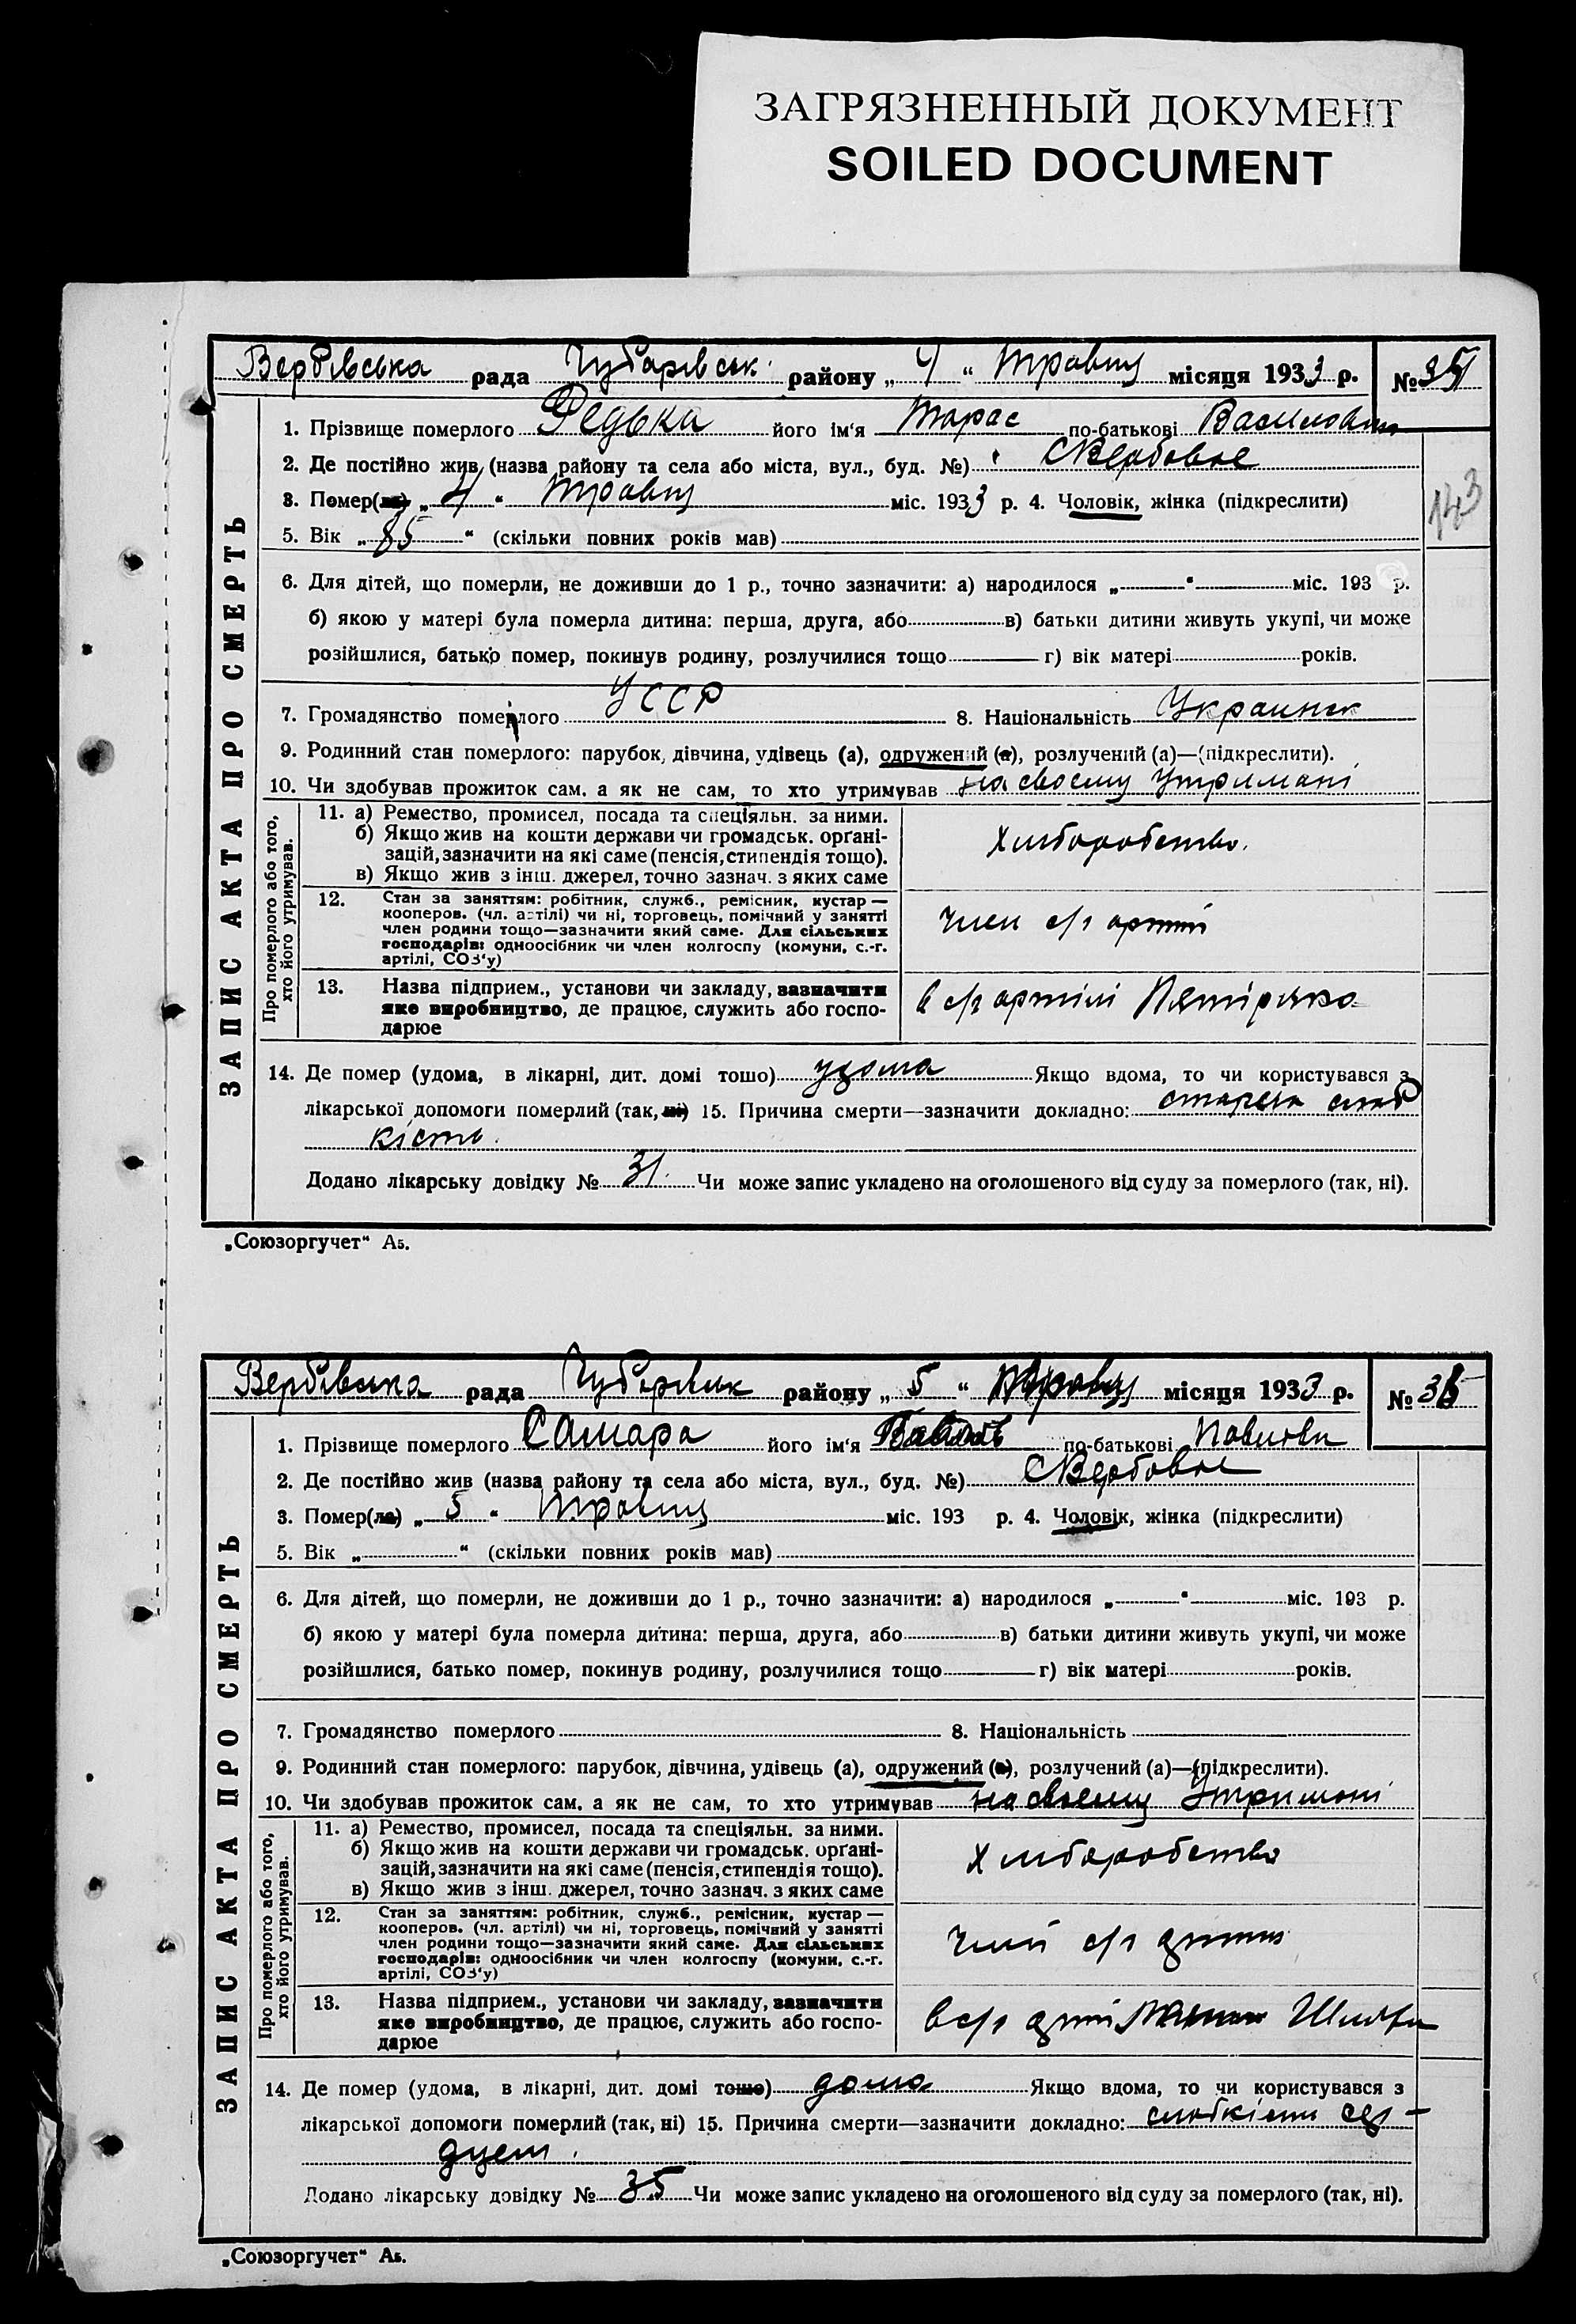 ЗАГРЯЗНЕННЫЙ ДОКУМЕНТ
SOILED DOCUMENT
Вербівська рада Чубарівськ. району „ 4 “ травня місяця 1933 р. №
ЗАПИС АКТА ПРО СМЕРТЬ
1. Прізвище померлого Редька його ім‘я Тарас по-батькові Васильович
2. Де постійно жив (назва району та села або міста, вул., буд. №) с Вербовое
3. Помер(ла) „ 4 “ травня міс. 1933 р. 4. Чоловік, жінка (підкреслити)
143
5. Вік „ 85 “ (скільки повних років мав)
6. Для дітей, що померли, не доживши до 1 р., точно зазначити: а) народилося „ “ міс. 193 р.
б) якою у матері була померла дитина: перша, друга, або в) батьки дитини живуть укупі, чи може
розійшлися, батько помер, покинув родину, розлучилися тощо г) вік матері років.
7. Громадянство померлого УССР 8. Національність
9. Родинний стан померлого: парубок, дівчина, удівець (а), одружений (а), розлучений (а)—(підкреслити).
10. Чи здобував прожиток сам, а як не сам, то хто утримував на своему утримані
Про померлого або того,
хто його утримував.
11. а) Ремество, промисел, посада та спеціяльн. за ними.
б) Якщо жив на кошти держави чи громадськ. орґані-
зацій, зазначити на які саме (пенсія, стипендія тощо).
в) Якщо жив з інш. джерел, точно зазнач. з яких саме
Хліборобство.
12. Стан за заняттям: робітник, служб., ремісник, кустар —
кооперов. (чл. артілі) чи ні, торговець, помічний у занятті
член родини тощо—зазначити який саме. Для сільських
господарів: одноосібник чи член колгоспу (комуни, с.-г.
артілі, СОЗ‘у)
член с/г артілі
13. Назва підприєм., установи чи закладу, зазначити
яке виробництво, де працює, служить або госпо-
дарює
в с/г артілі
14. Де помер (удома, в лікарні, дит. домі тошо) удома Якщо вдома, то чи користувався з
лікарської допомоги померлий (так, ні) 15. Причина смерти—зазначити докладно: стареча слаб
кість.
Додано лікарську довідку № 31. Чи може запис укладено на оголошеного від суду за померлого (так, ні).
„Союзоргучет“ А5.
Вербівська рада Чубарівськ району „ 5 “ травня місяця 1933 р. №
ЗАПИС АКТА ПРО СМЕРТЬ
1. Прізвище померлого Самара його ім‘я по-батькові Павлови
2. Де постійно жив (назва району та села або міста, вул., буд. №) с Вербовое
3. Помер(ла) „ 5 “ травня міс. 193 р. 4. Чоловік, жінка (підкреслити)
5. Вік „ “ (скільки повних років мав)
6. Для дітей, що померли, не доживши до 1 р., точно зазначити: а) народилося „ “ міс. 193 р.
б) якою у матері була померла дитина: перша, друга, або в) батьки дитини живуть укупі, чи може
розійшлися, батько помер, покинув родину, розлучилися тощо г) вік матері років.
7. Громадянство померлого 8. Національність
9. Родинний стан померлого: парубок, дівчина, удівець (а), одружений (а), розлучений (а)—(підкреслити).
10. Чи здобував прожиток сам, а як не сам, то хто утримував на своему утримані
Про померлого або того,
хто його утримував.
11. а) Ремество, промисел, посада та спеціяльн. за ними.
б) Якщо жив на кошти держави чи громадськ. орґані-
зацій, зазначити на які саме (пенсія, стипендія тощо).
в) Якщо жив з інш. джерел, точно зазнач. з яких саме
Хліборобство
12. Стан за заняттям: робітник, служб., ремісник, кустар —
кооперов. (чл. артілі) чи ні, торговець, помічний у занятті
член родини тощо—зазначити який саме. Для сільських
господарів: одноосібник чи член колгоспу (комуни, с.-г.
артілі, СОЗ‘у)
член с/г артілі
13. Назва підприєм., установи чи закладу, зазначити
яке виробництво, де працює, служить або госпо-
дарює
в с/г
14. Де помер (удома, в лікарні, дит. домі тошо) дома Якщо вдома, то чи користувався з
лікарської допомоги померлий (так, ні) 15. Причина смерти—зазначити докладно: слабкість
Додано лікарську довідку № 35 Чи може запис укладено на оголошеного від суду за померлого (так, ні).
„Союзоргучет“ А5.